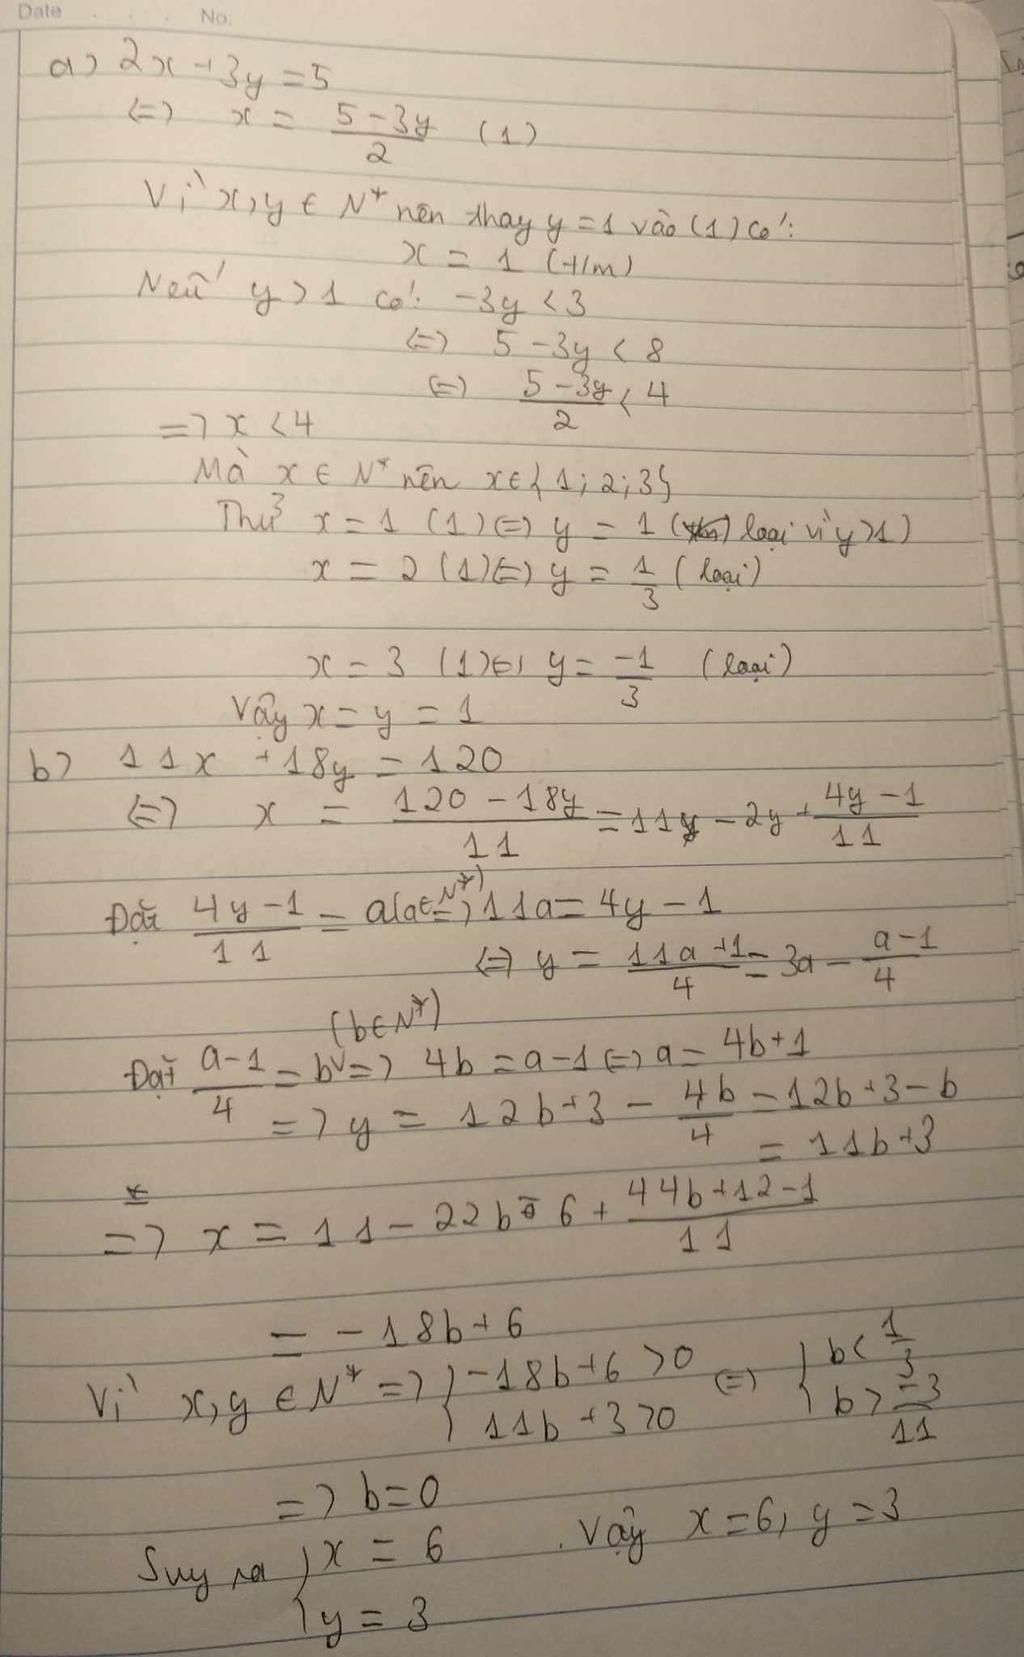 Date No.
a) 2x + 3y = 5
<=> x = (5 - 3y)/2 (1)
Vì x, y ∈ N* nên thay y = 1 vào (1) có:
x = 1 (t/m)
Nếu y > 1 có: -3y < 3
<=> 5 - 3y < 8
<=> (5 - 3y)/2 < 4
=> x < 4
Mà x ∈ N* nên x ∈ {1; 2; 3}
Thử x = 1 (1) <=> y = 1 (loại vì y > 1)
x = 2 (1) <=> y = 1/3 (loại)
x = 3 (1) <=> y = -1/3 (loại)
Vậy x = y = 1
b) 11x + 18y = 120
<=> x = (120 - 18y)/11 = 11 - 2y + (4y - 1)/11
Đặt (4y - 1)/11 = a (a ∈ N*) => 11a = 4y - 1
<=> y = (11a + 1)/4 = 3a - (a - 1)/4
(b ∈ N*)
Đặt (a - 1)/4 = b => 4b = a - 1 <=> a = 4b + 1
=> y = 12b + 3 - 4b/4 = 12b + 3 - b
= 11b + 3
=> x = 11 - 22b - 6 + (44b + 12 - 1)/11
= -18b + 6
Vì x, y ∈ N* => { -18b + 6 > 0 <=> { b < 1/3
11b + 3 > 0 b > -3/11
=> b = 0
Suy ra { x = 6 . Vậy x = 6, y = 3
y = 3